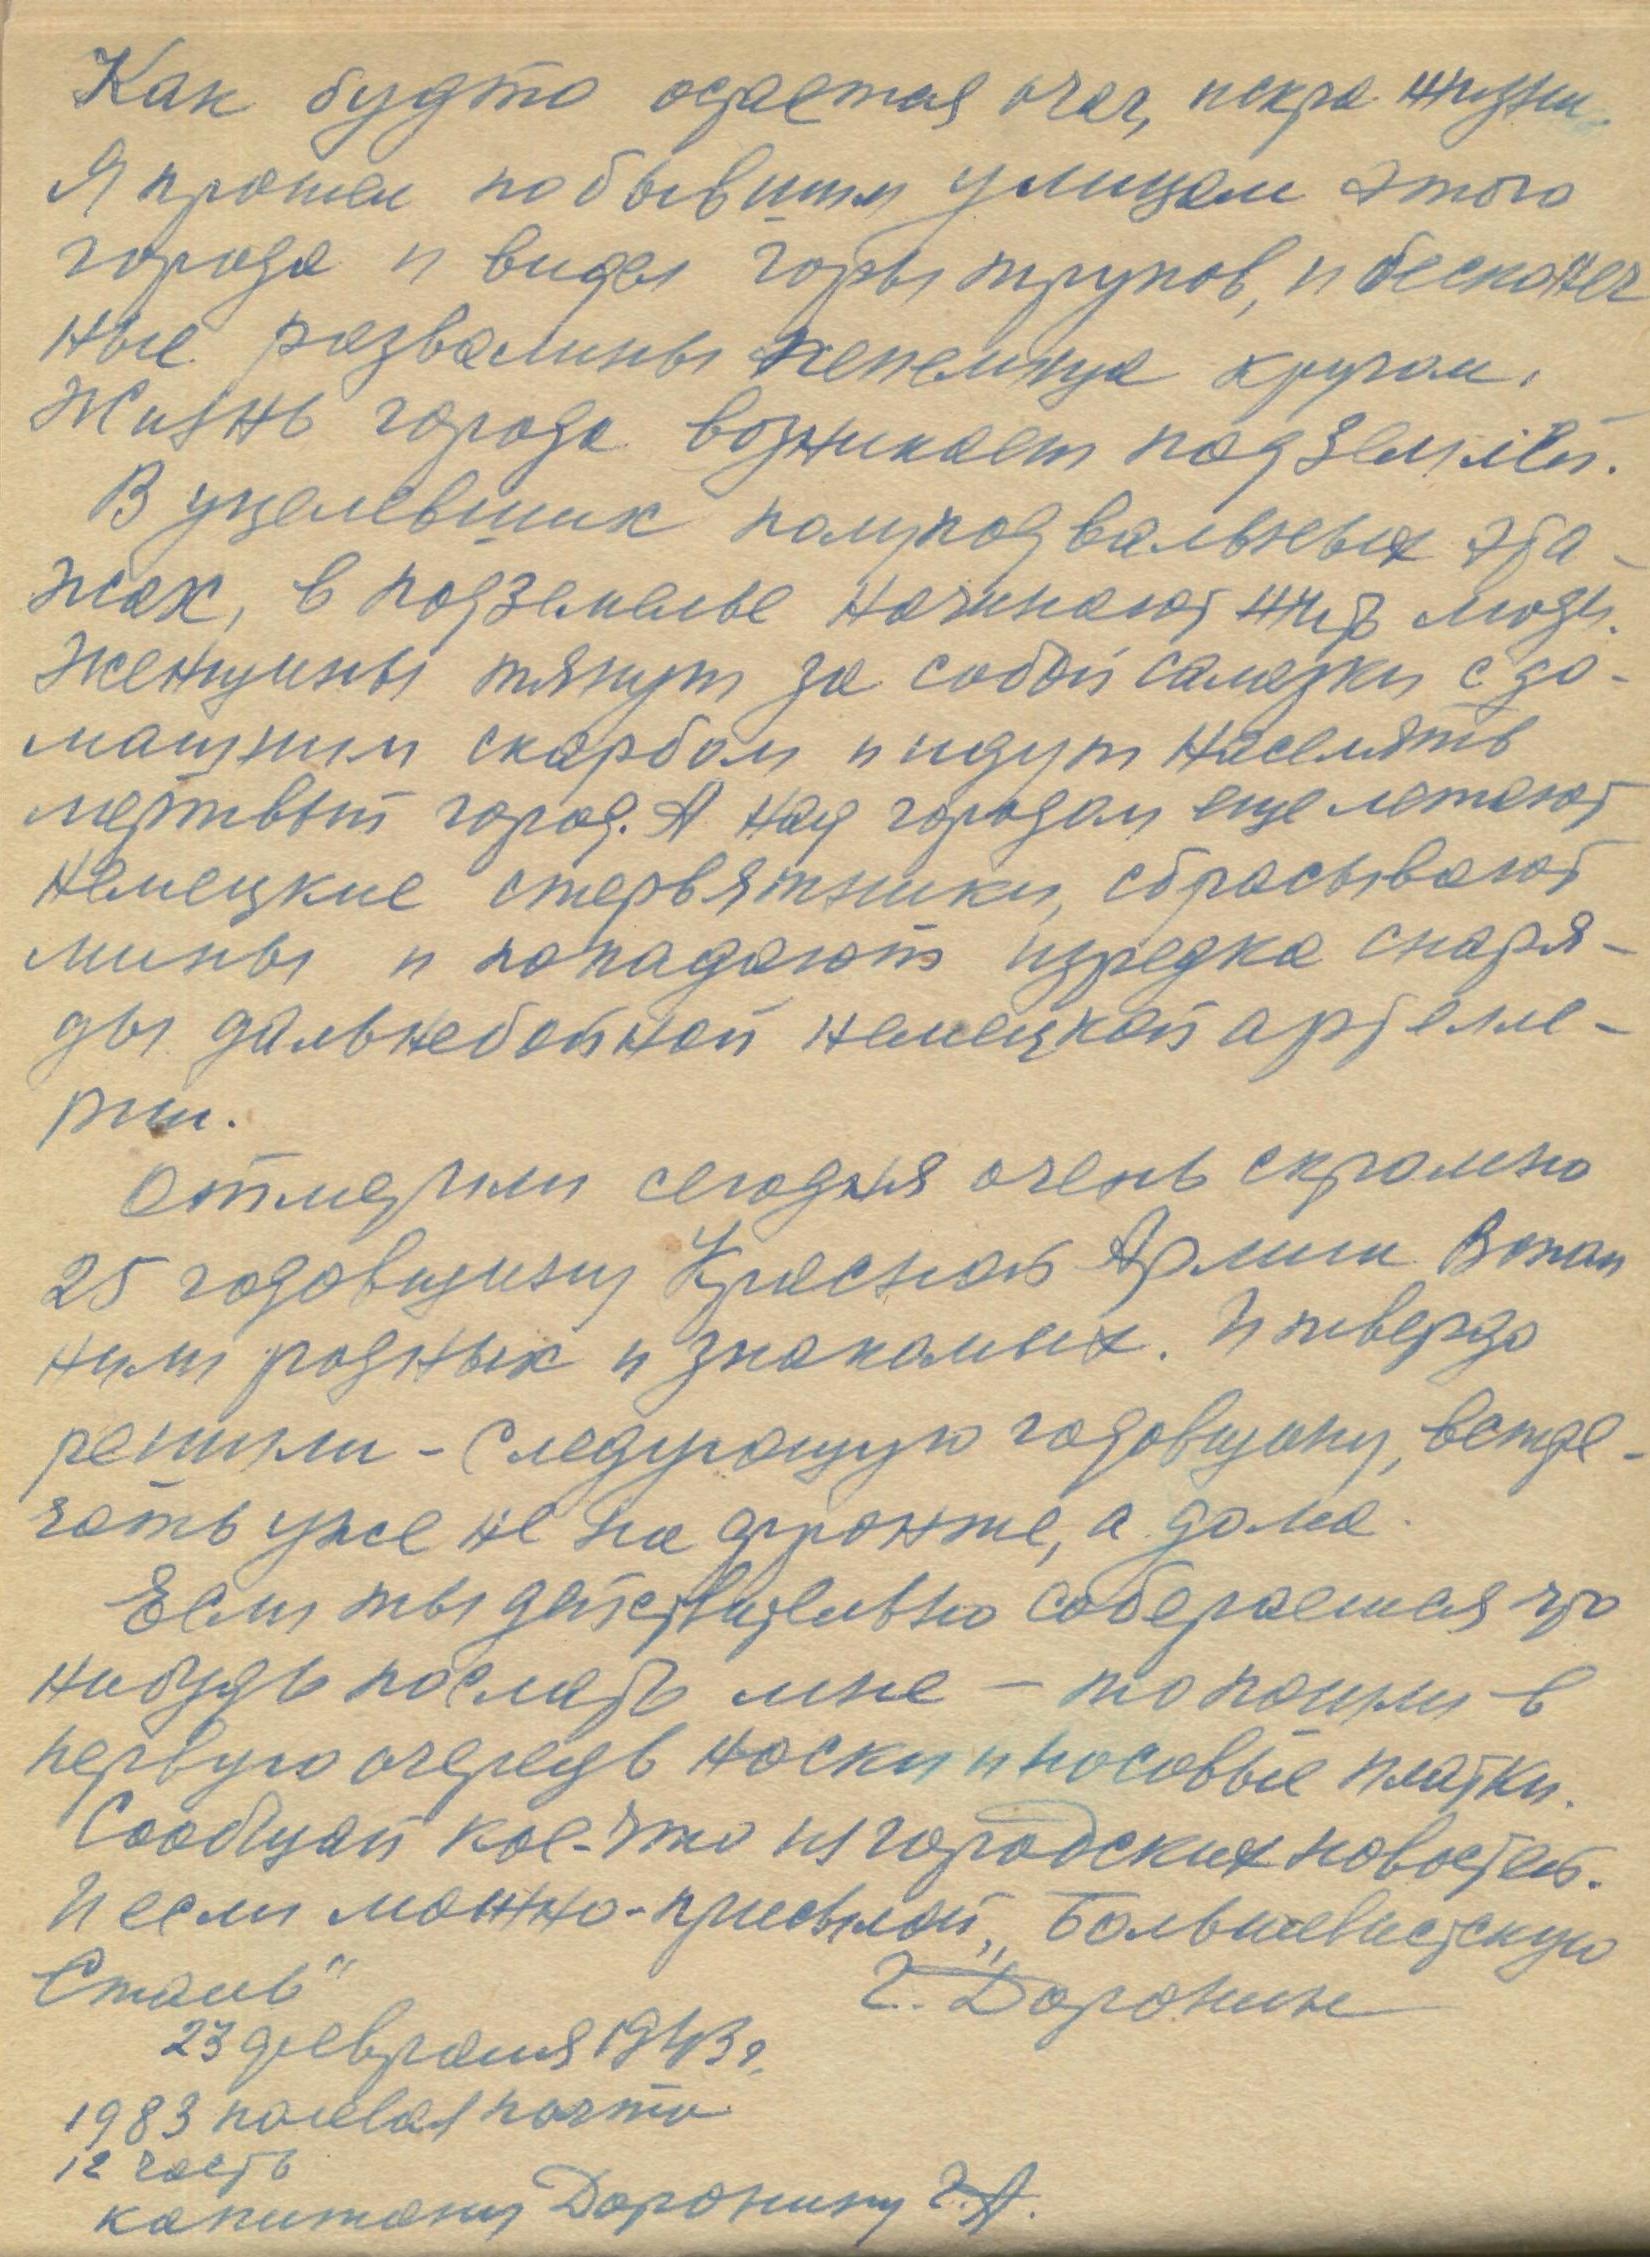 Как будто остается очаг, искра жизни.
Я прошел по бывшим улицам этого
города и видел горы трупов, и бесконеч
ные развалины пепелища кругом.
Жизнь города возникает под землей.
В уцелевших полуподвальных эта-
жах, в подземелье начинают жить люди.
Женщины тянут за собой салазки с до-
машним скарбом и идут населять
мертвый город. А над городом еще летают
немецкие стервятники, сбрасывают
мины и попадают изредка снаря-
ды дальнебойной немецкой артелле-
рии.
Отметили сегодня очень скромно
25 годовщину Красной Армии. Вспом
нили родных и знакомых. И твердо
решили - следующую годовщину, встре-
чать уже не на фронте, а дома.
Если ты действительно соберешься что
нибудь послать мне - то пошли в
первую очередь носки и носовые платки.
Сообщай кое-что из городских новостей.
И если можно - присылай „Большевистскую
Сталь"
Г. Доронин
23 февраля 1943 г.
1983 полевая почта
12 часть
капитану Доронину Г.А.